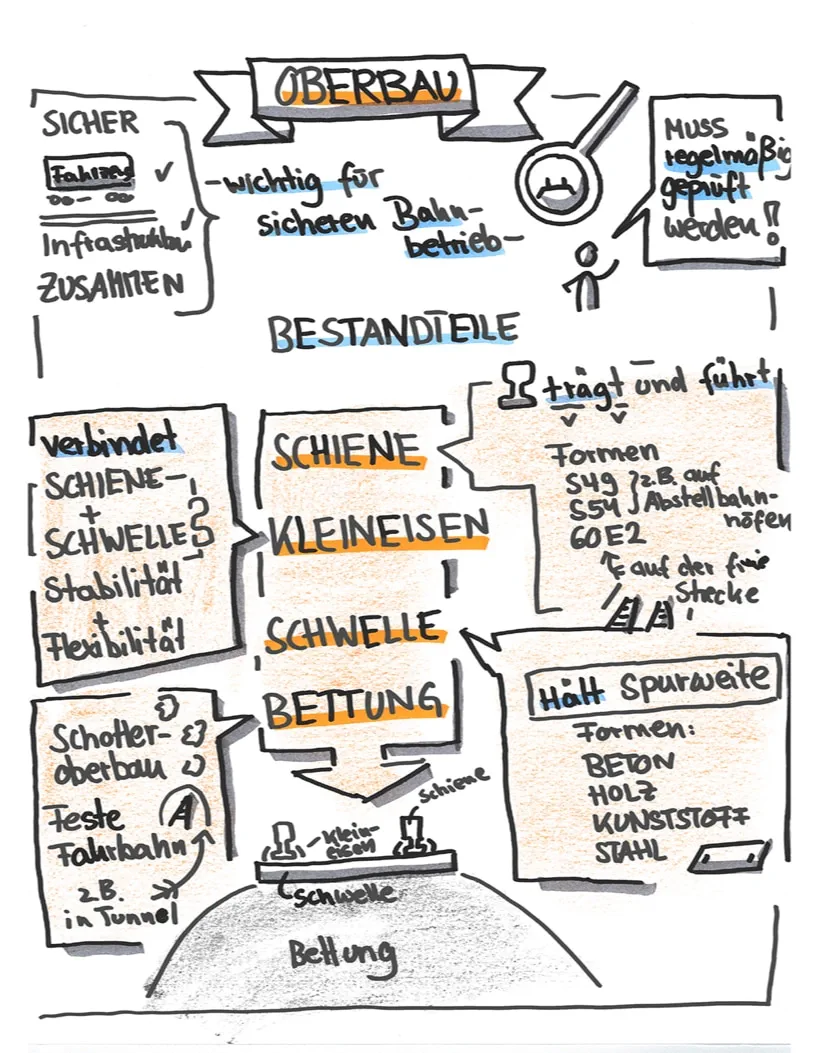 OBERBAU
SICHER
Fahrzeug
Infrastruktur
ZUSAMMEN
-wichtig für
sicheren Bahn-
betrieb-
Muss
regelmäßig
geprüft
werden!!
BESTANDTEILE
SCHIENE
KLEINEISEN
SCHWELLE
BETTUNG
trägt und führt
Formen
S49
S54
z.B. auf
Abstellbahn-
höfen
60E2
auf der freie
Strecke
verbindet
SCHIENE-
+
SCHWELLE
Stabilität
+
Flexibilität
Hält Spurweite
Formen:
BETON
HOLZ
KUNSTSTOFF
STAHL
Schotter-
oberbau
Feste
Fahrbahn
z.B.
in Tunnel
Schiene
Klein-
eisen
Schwelle
Bettung